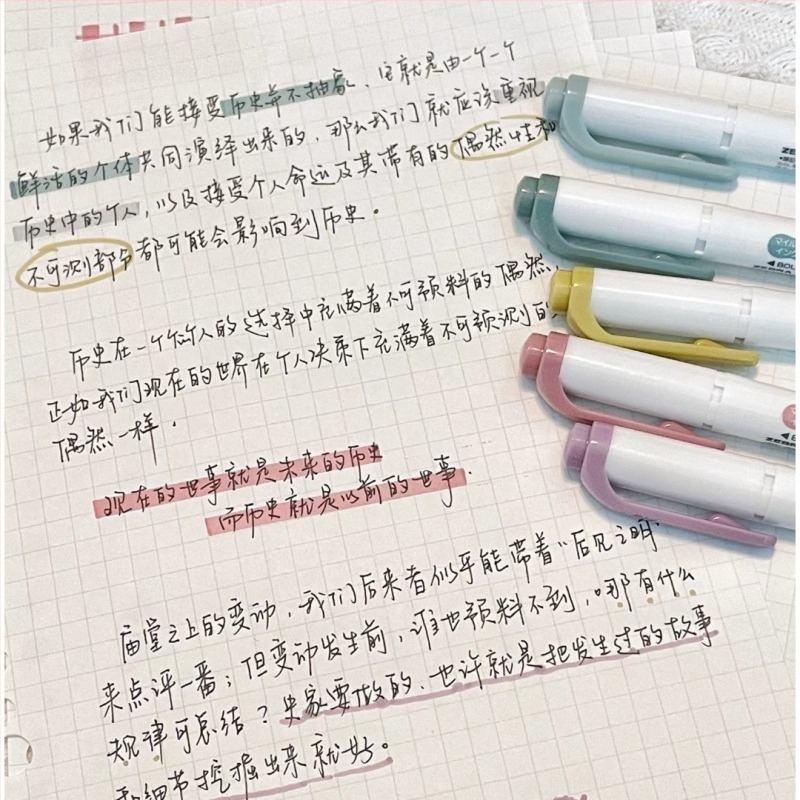 如果我们能接受历史并不抽象、它就是由一个一个
鲜活的个体共同演绎出来的，那么我们就应该重视
历史中的个人，以及接受个人命运及其带有的偶然性和
不可测部分都可能会影响到历史。
历史在一个个人的选择中充满着不可预料的偶然，
正如我们现在的世界在个人决策下充满着不可预测的
偶然一样。
现在的世事就是未来的历史
而历史就是以前的世事.
庙堂之上的变动，我们后来者似乎能带着“后见之明”
来点评一番；但变动发生前，谁也预料不到，哪有什么
规律可总结？史家要做的、也许就是把发生过的故事
和细节挖掘出来就好。
マイル
イン
◀BOL
ZEBRA